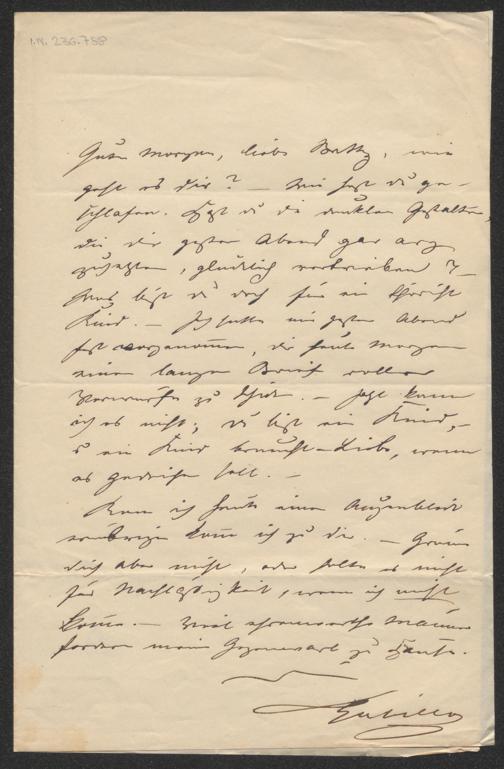 I.N. 236.788
Guten Morgen, liebe Betty, wie
geht es dir? — Wie hast du ge-
schlafen. Hast du die dunklen Gestalten,
die dir gestern Abend gar arg
zusetzten, glücklich vertrieben? —
Was bist du doch für ein
Kind. — Ich hatte mir gestern Abend
fest vorgenommen, dir heute Morgen
einen langen Brief voller
Vorwürfe zu — Jetzt kann
ich es nicht; du bist ein Kind, —
u ein Kind braucht Liebe, wenn
es gedeihen soll. —
Kann ich heute einen Augenblick
komme ich zu dir. —
dich aber nicht, oder halte es nicht
für Nachlässigkeit, wenn ich nicht
komme. — Zwei ehrenwerthe Männer
fordern meine Gegenwart zu